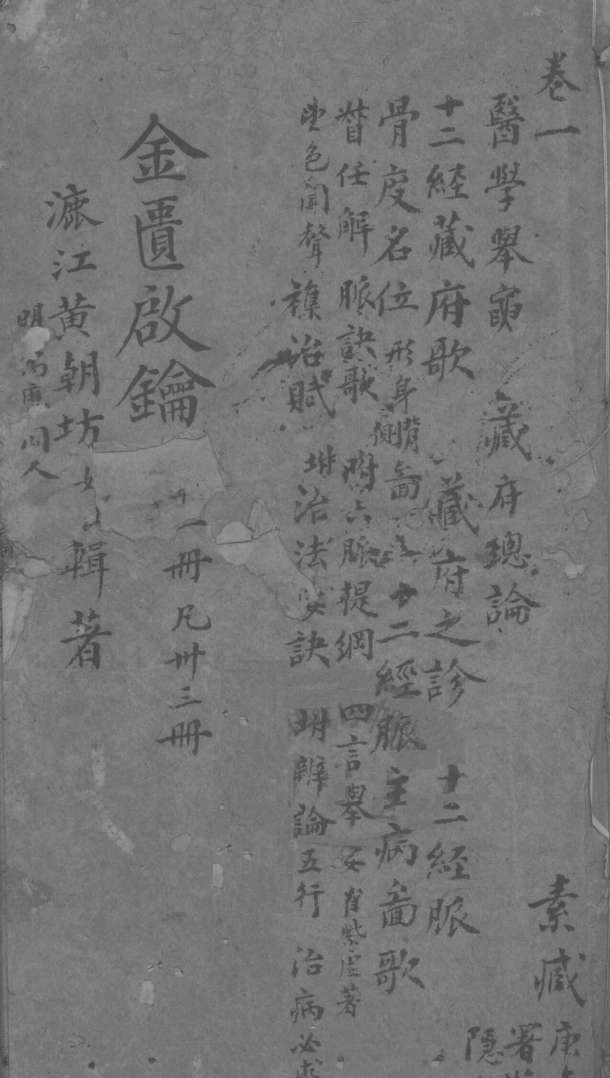 卷一
醫學舉 藏府總論
十二經藏府歌 藏府之診 十二經脈
骨度名位 形身側背啚 十二經脈主病啚歌
督任解 脈訣歌 附六脈提綱 四言舉要 崔紫虛著
望色聞聲 襍治賦 坿治法 訣 坿辨論五行 治病必求
金匱啟鑰
一冊凡卅三冊
漉江黄朝坊 輯著
素臧 庚
署
隱